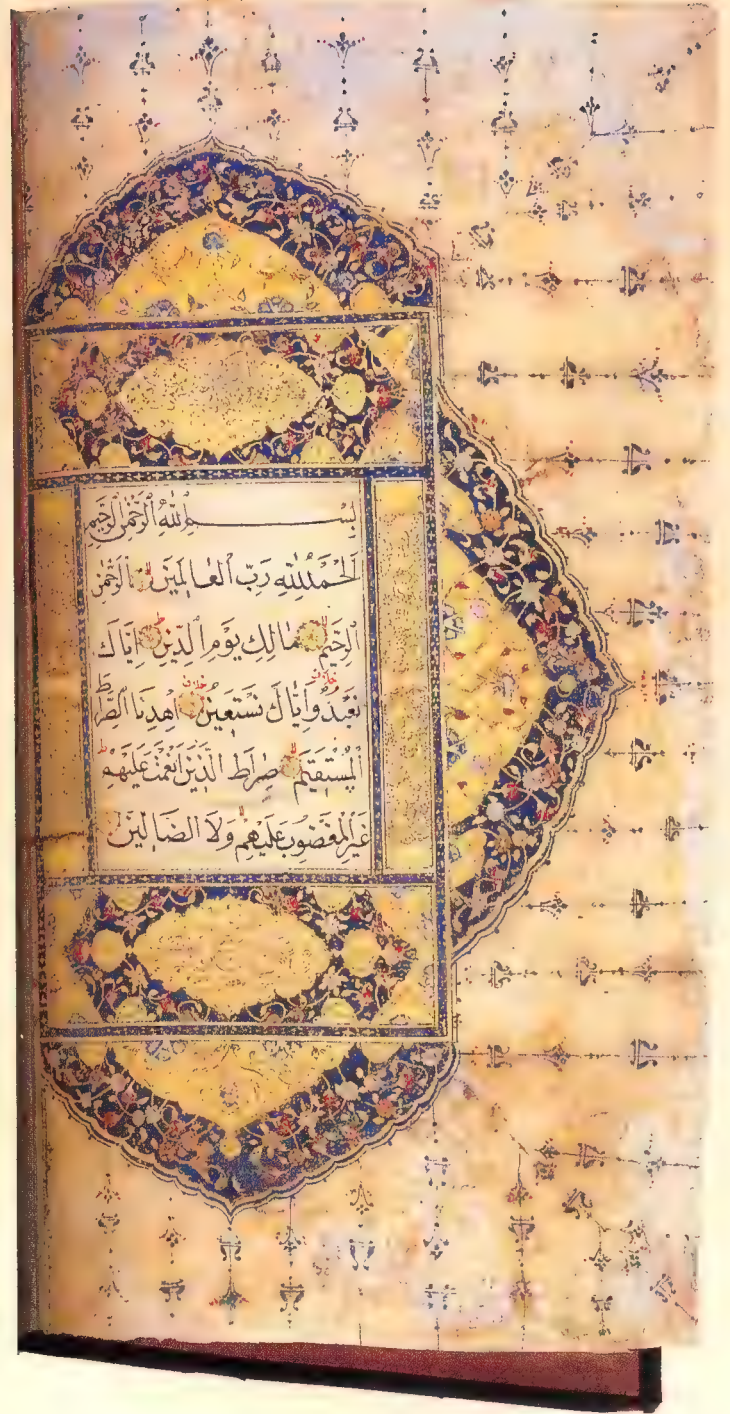 بِسْمِ ٱللَّهِ ٱلرَّحْمٰنِ ٱلرَّحِيمِ
ٱلْحَمْدُ لِلَّهِ رَبِّ ٱلْعَالَمِينَ ٱلرَّحْمٰنِ
ٱلرَّحِيمِ مَالِكِ يَوْمِ ٱلدِّينِ إِيَّاكَ
نَعْبُدُ وَإِيَّاكَ نَسْتَعِينُ ٱهْدِنَا ٱلصِّرَاطَ
ٱلْمُسْتَقِيمَ صِرَاطَ ٱلَّذِينَ أَنْعَمْتَ عَلَيْهِمْ
غَيْرِ ٱلْمَغْضُوبِ عَلَيْهِمْ وَلَا ٱلضَّالِّينَ